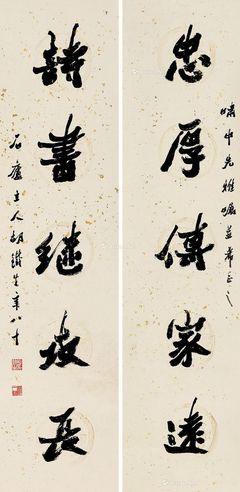 忠厚傳家遠
嘯中兄雅囑並希正之
詩書继世長
石廬主人胡鐵生年八十